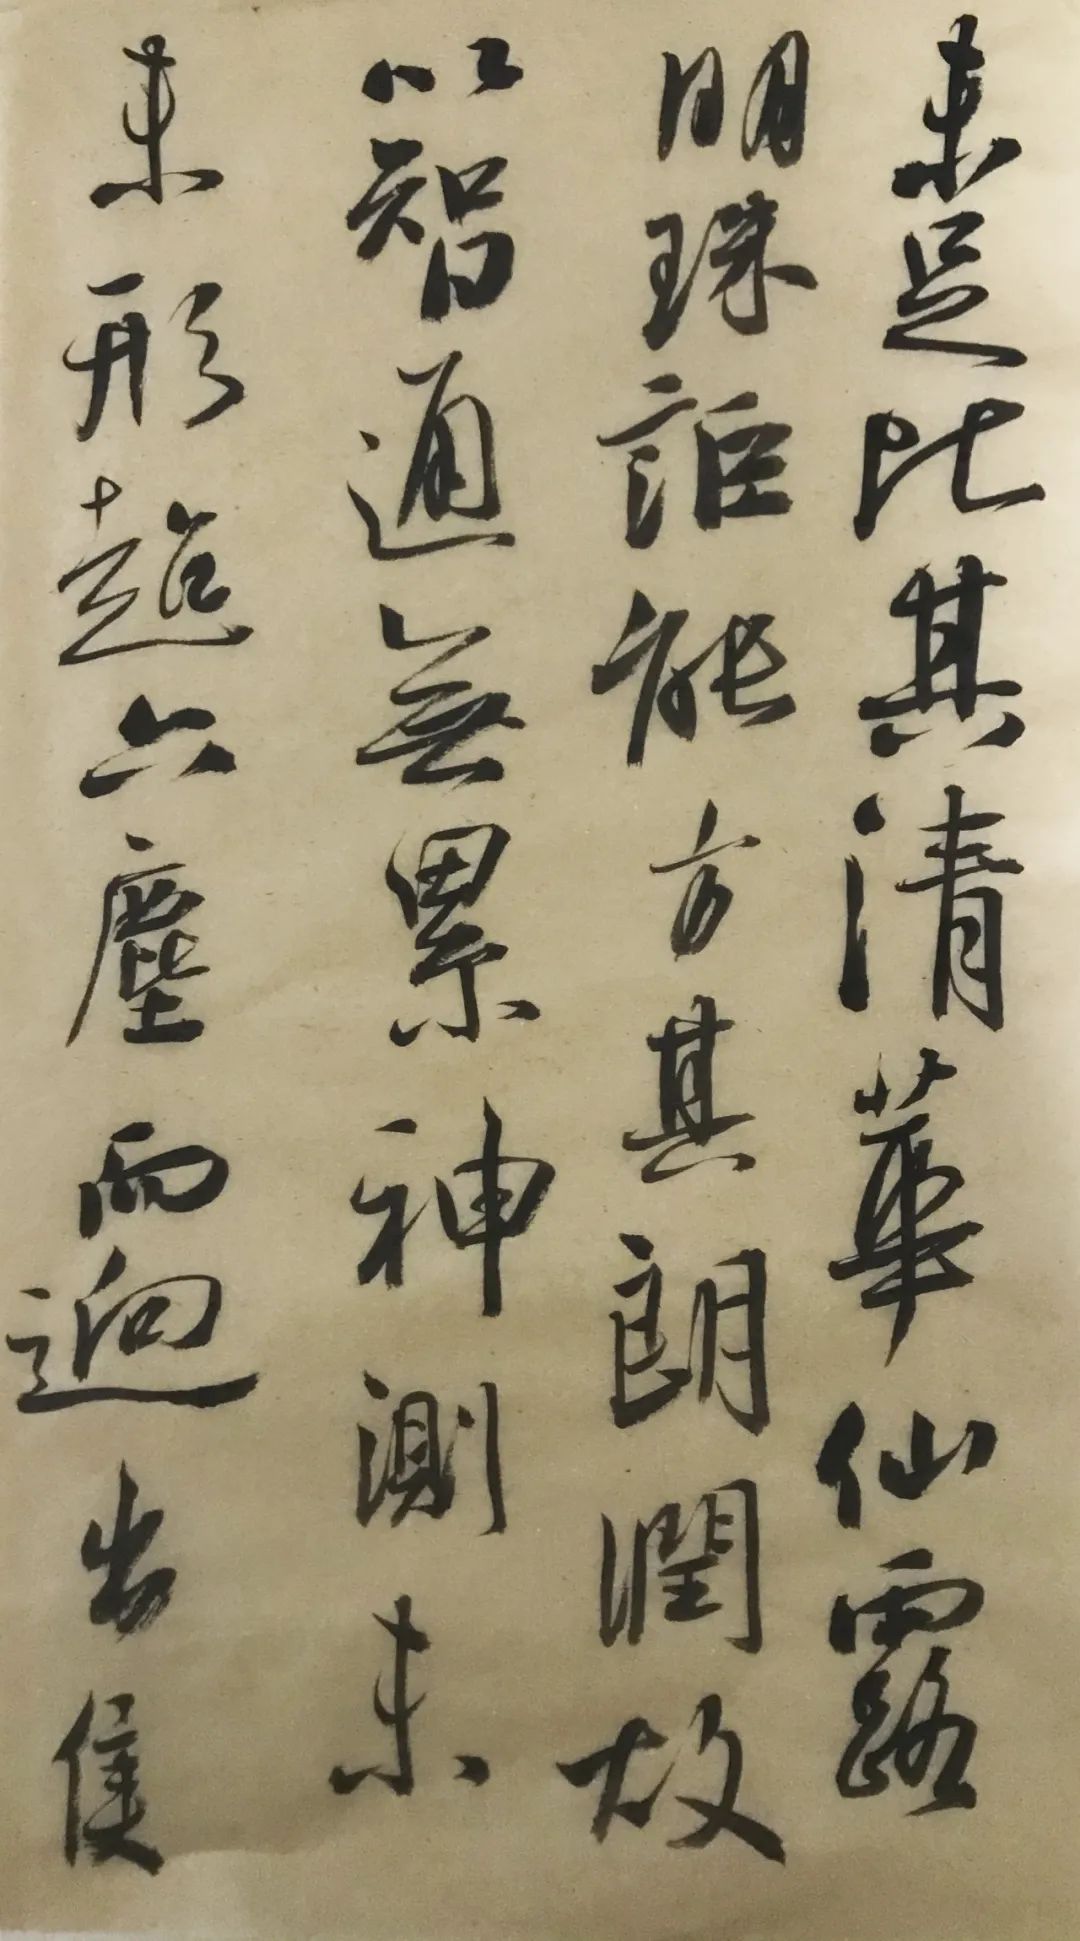 未足比其清華仙露
明珠詎能方其朗潤故
以智通無累神測未
未形超六塵而迥出侯